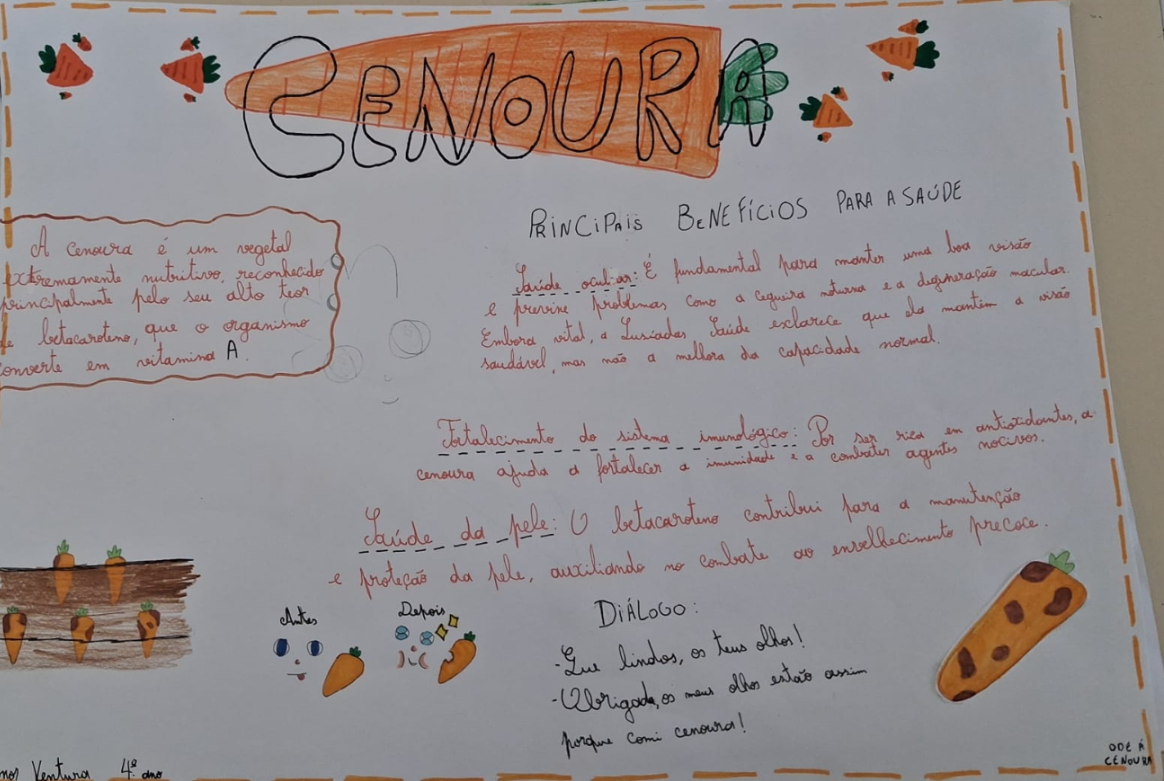 CENOURA
A cenoura é um vegetal
extremamente nutritivo, reconhecido
principalmente pelo seu alto teor
de betacaroteno, que o organismo
converte em vitamina A.
PRINCIPAIS BENEFÍCIOS PARA A SAÚDE
Saúde ocular: É fundamental para manter uma boa visão
e previne problemas, como a cegueira noturna e a degeneração macular.
Embora vital, a Lusíadas Saúde esclarece que ela mantém a visão
saudável, mas não a melhora da capacidade normal.
Fortalecimento do sistema imunológico: Por ser rica em antioxidantes, a
cenoura ajuda a fortalecer a imunidade e a combater agentes nocivos.
Saúde da pele: O betacaroteno contribui para a manutenção
e proteção da pele, auxiliando no combate ao envelhecimento precoce.
Antes
Depois
DIÁLOGO:
-Que lindos, os teus olhos!
-Obrigada, os meus olhos estão assim
porque comi cenoura!
Ventura 4º ano
ODE À
CENOURA